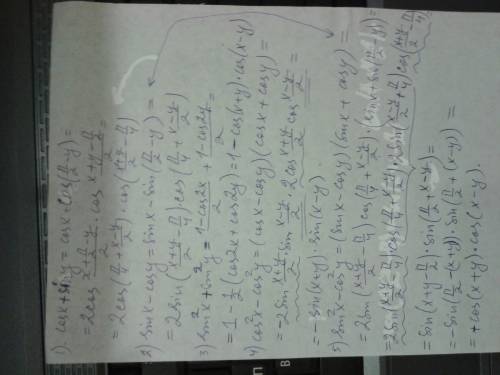 1) cosx+siny = cosx+cos(π/2-y)=
=2cos (x+π/2-y)/2 · cos (x+y-π/2)/2 =
=2cos(π/4+(x-y)/2)·cos((x+y)/2-π/4)
2) sinx-cosy=sinx-sin(π/2-y)=
=2sin((x+y)/2-π/4)cos(π/4+(x-y)/2)
3) sin²x+sin²y = (1-cos2x)/2+(1-cos2y)/2=
=1-1/2(cos2x+cos2y)=1-cos(x+y)·cos(x-y)
4) cos²x-cos²y=(cosx-cosy)(cosx+cosy)=
=-2sin (x+y)/2 · sin (x-y)/2 · 2cos (x+y)/2 cos (x-y)/2 =
=-sin(x+y)·sin(x-y).
5) sin²x-cos²y=(sinx-cosy)(sinx+cosy)=
=2sin((x+y)/2-π/4)cos(π/4+(x-y)/2)·(sinx+sin(π/2-y))=
=2sin((x+y)/2-π/4)cos(π/4+(x-y)/2)·2sin(x-y/2+π/4)cos((x+y)/2-π/4)=
=sin(x+y-π/2)·sin(π/2+x-y)=
=-sin(π/2-(x+y))·sin(π/2+(x-y))=
=+cos(x+y)·cos(x-y).